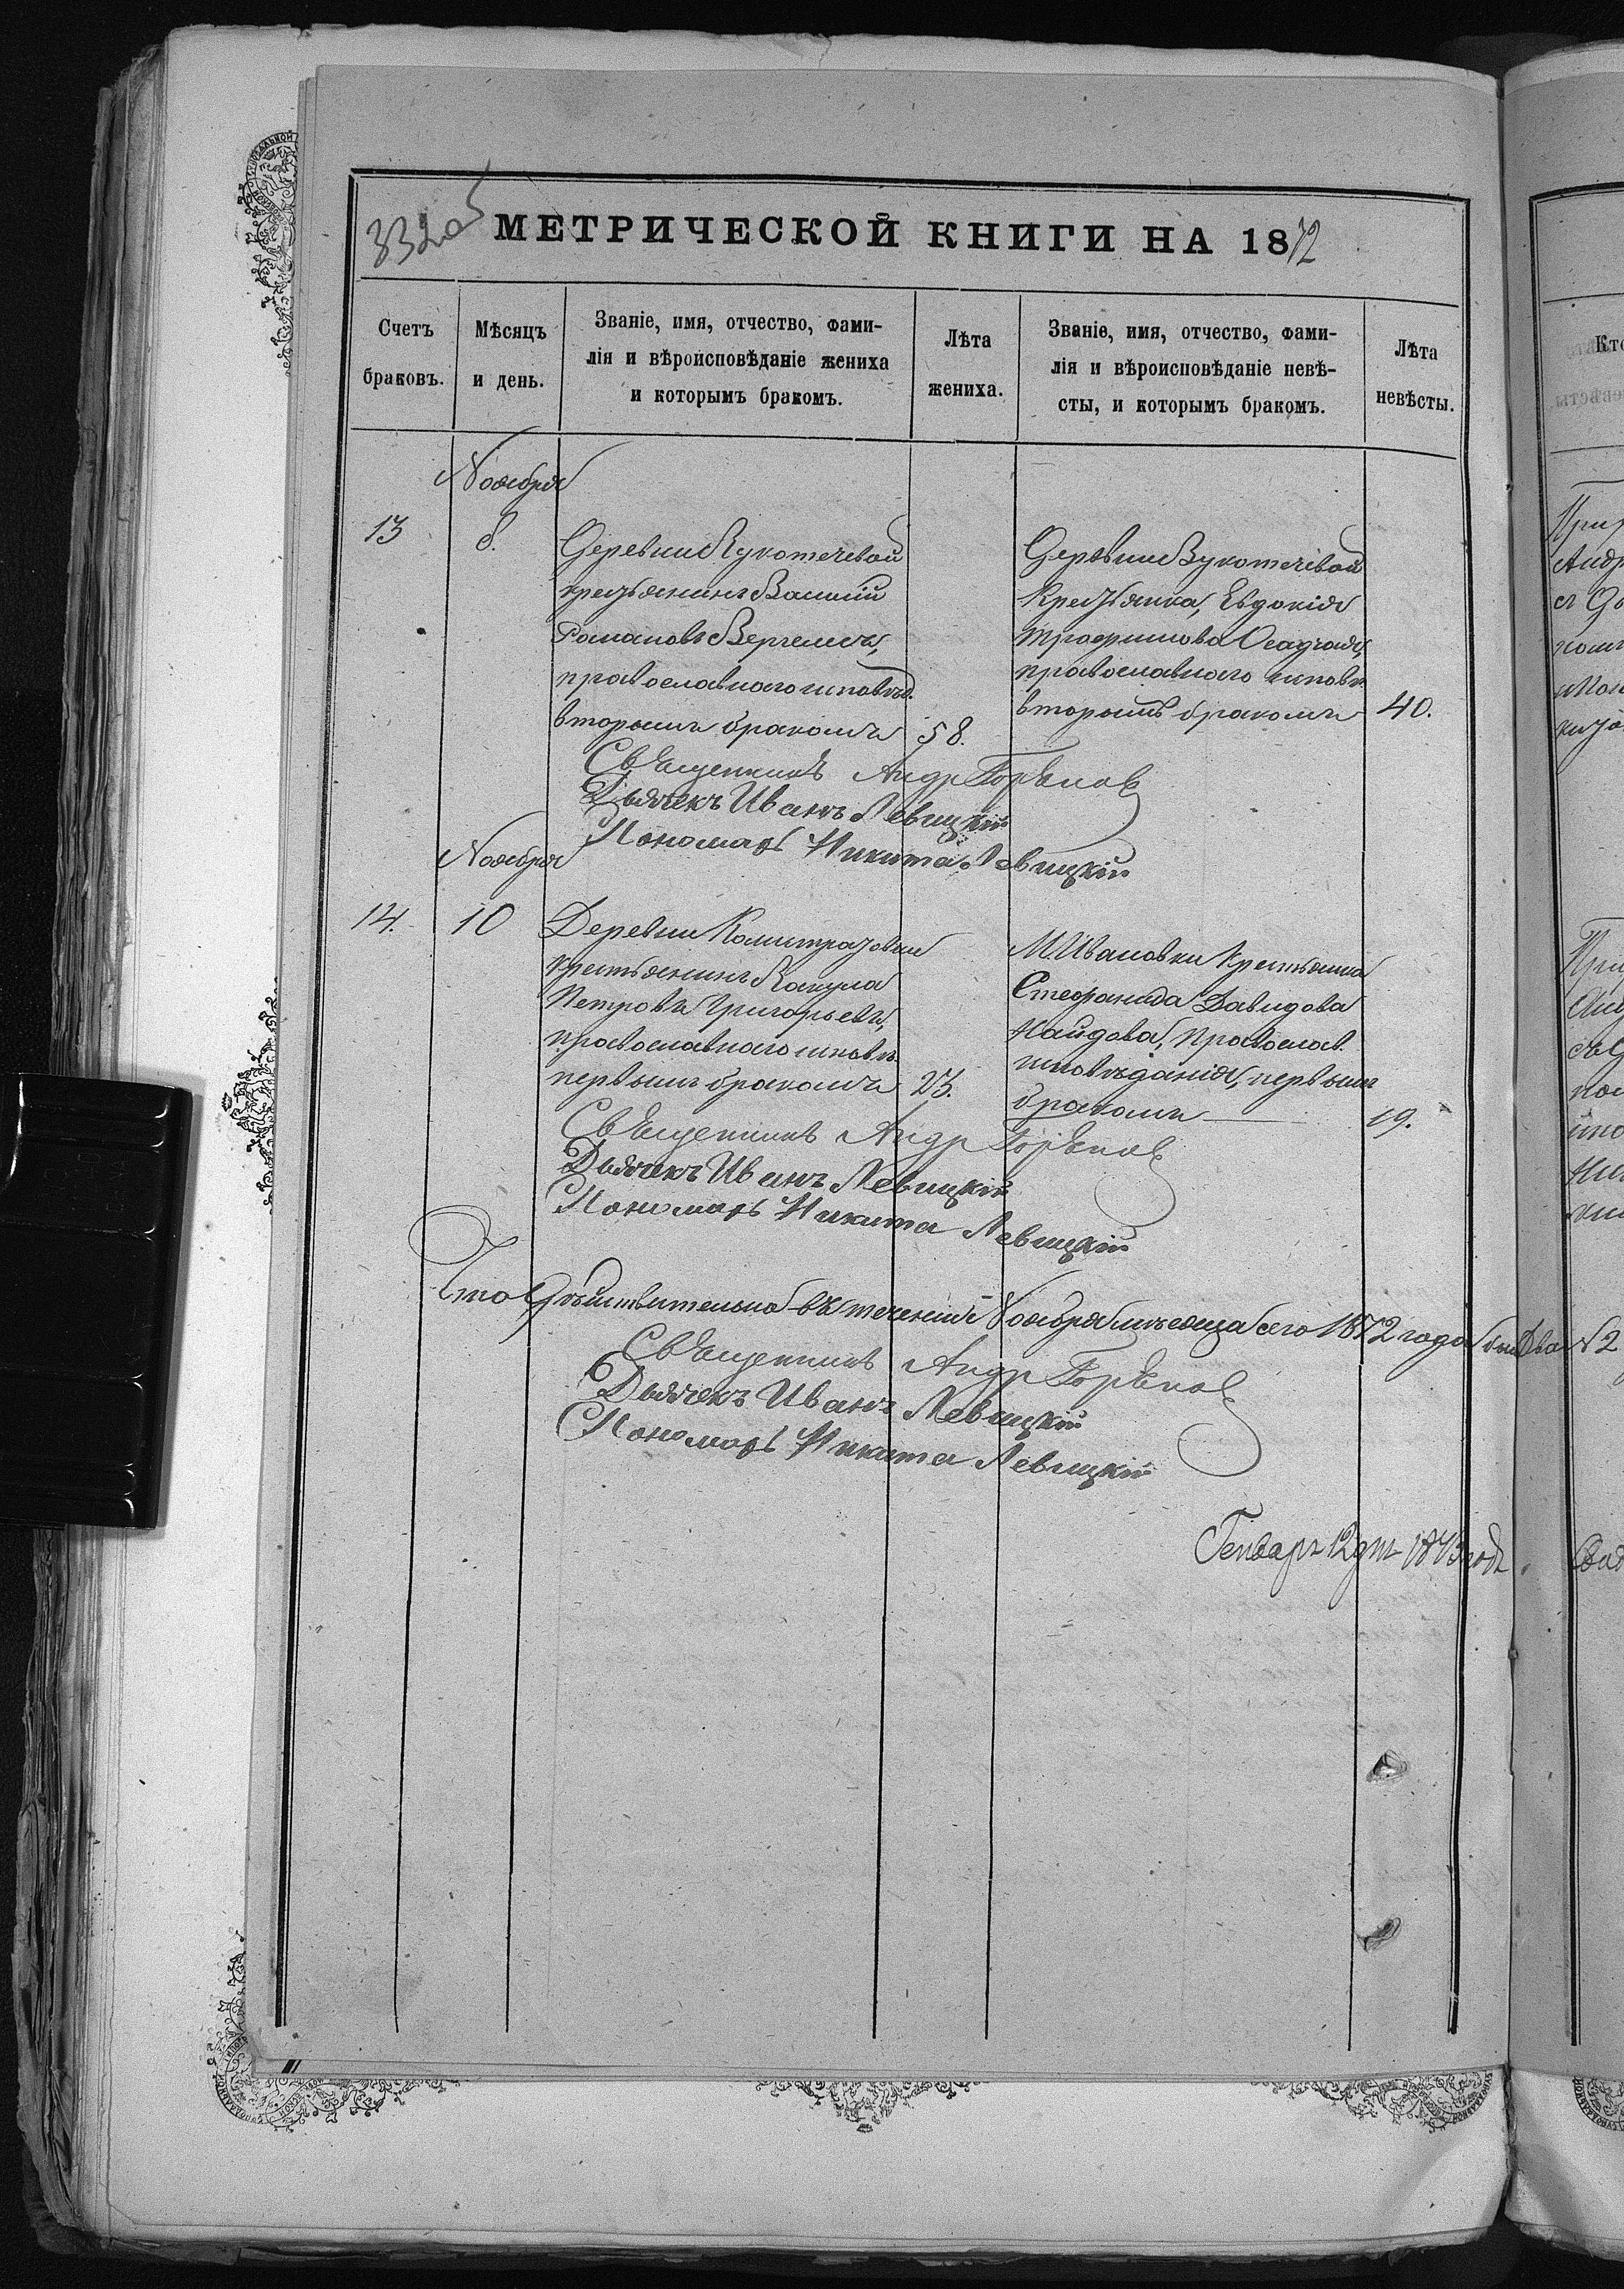 332об
МЕТРИЧЕСКОЙ КНИГИ НА 1872
Счетъ браковъ.
Мѣсяцъ и день.
Званіе, имя, отчество, фами-
лія и вѣроисповѣданіе жениха
и которымъ бракомъ.
Лѣта жениха.
Званіе, имя, отчество, фами-
лія и вѣроисповѣданіе невѣ-
сты, и которымъ бракомъ.
Лѣта невѣсты.
Ноября
13
8.
Деревни
крестьянинъ Василий
Романовъ
православнаго исповѣд.
вторымъ бракомъ
58.
Деревни
Крестьянка, Евдокія
Трофимова Осадчая,
православнаго исповѣ.
вторымъ бракомъ
40.
Священникъ Андр
Дьячекъ Иванъ Левицкій
Пономарь Никита Левицкій
Ноября
14.
10
Деревни
крестьянинъ Вакула
Петровъ Григорьевъ,
православнаго исповѣ.
первымъ бракомъ
23.
М. Ивановки Крестьянка
Стефанида Давидова
Найдова, Православ.
исповѣданія, первымъ
бракомъ
19.
Священникъ Андр
Дьячекъ Иванъ Левицкій
Пономарь Никита Левицкій
Что дѣйствительно въ теченіи Ноября мѣсяца сего 1872 года
Священникъ Андр
Дьячекъ Иванъ Левицкій
Пономарь Никита Левицкій
Генваря 12 дня 1873 года